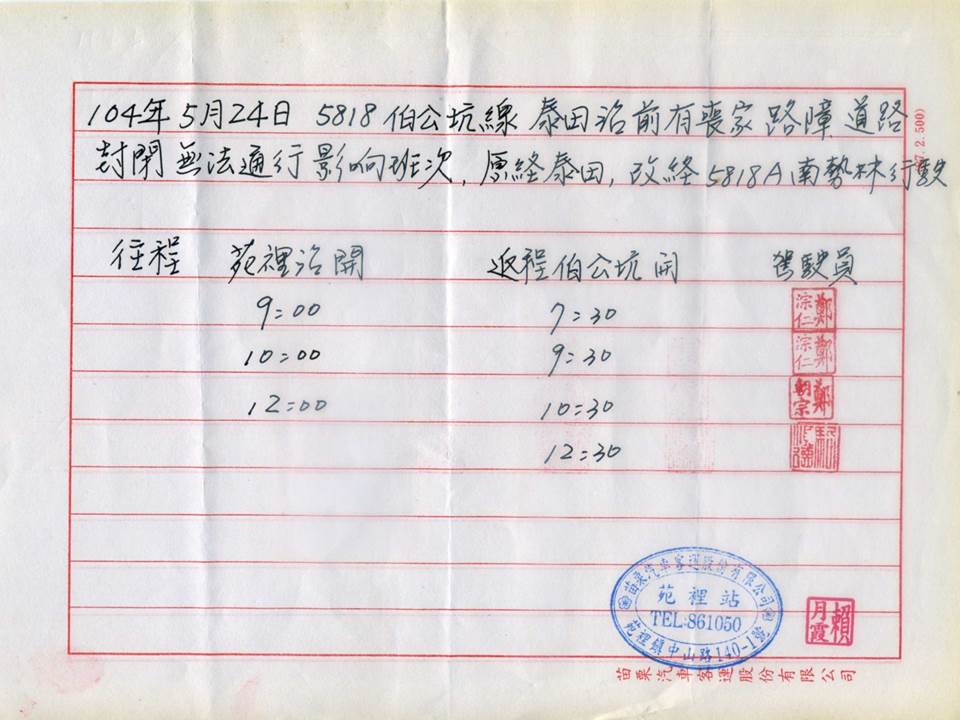 104年5月24日 5818伯公坑線 泰田沿前有喪家路障道路
封閉無法通行影响班次,原経泰田,改経5818A南勢林行駛
(97.2.500)
往程 苑裡沿開 返程伯公坑開 駕駛員
9:00 7:30 鄭宗仁
10:00 9:30 鄭宗仁
12:00 10:30 鄭朝宗
12:30
苗栗汽車客運股份有限公司
苑裡站
TEL:861050
苑裡鎮中山路140-1號
賴月霞
苗栗汽車客運股份有限公司